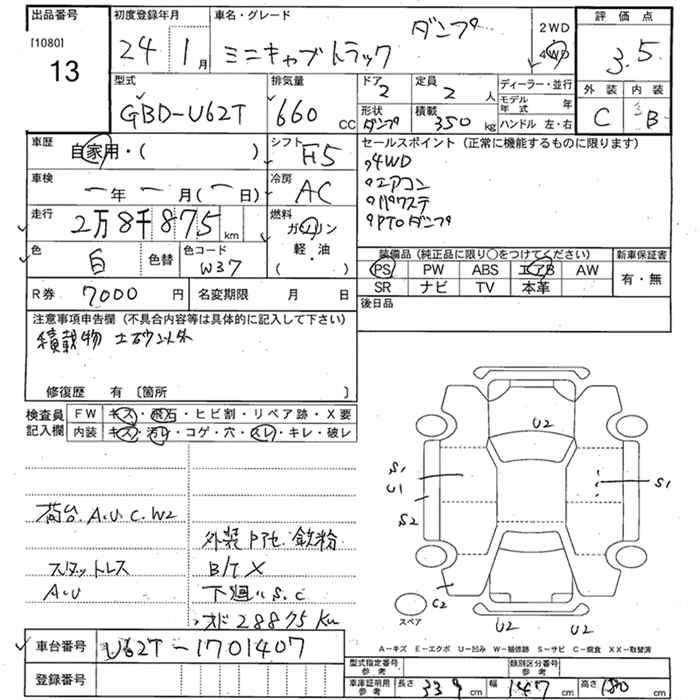 出品番号
[1080]
13
初度登録年月
24年 1月
車名・グレード
ミニキャブトラック ダンプ
2WD
4WD
評価点
3.5
外装 内装
C B
型式
GBD-U62T
排気量
660 cc
ドア
2
定員
2 人
形状
ダンプ
積載
350 kg
ディーラー・並行
モデル年式 年
ハンドル 左・右
車歴
自家用・( )
シフト
F5
車検
ー年ー月(ー日)
冷房
AC
走行
2万8千875 km
燃料
ガソリン
軽・油
( )
色
白
色替
色コード
W37
R券
7000 円
名変期限 月 日
セールスポイント(正常に機能するものに限ります)
4WD
エアコン
パワステ
PTOダンプ
装備品(純正品に限り○をつけてください)
PS PW ABS エアB AW
SR ナビ TV 本革
新車保証書
有・無
後日品
注意事項申告欄(不具合内容等は具体的に記入して下さい)
積載物 土砂以外
修復歴 有〔箇所 〕
検査員記入欄
FW キズ・飛石・ヒビ割・リペア跡・X要
内装 キズ・汚れ・コゲ・穴・スレ・キレ・破レ
荷台 A.U.C.W2
スタットレス
A.U
外装 鉄粉
B/T X
下廻 S.C
オド 28875 Km
U2
S1
U1
S2
S1
C2
U2 U2
スペア
A-キズ E-エクボ U-凹み W-補修跡 S-サビ C-腐食 XX-取替済
車台番号
U62T-1701407
登録番号
型式指定番号 参考
類別区分番号 参考
車庫証明用 参考
長さ 339 cm 幅 147 cm 高さ 180 cm